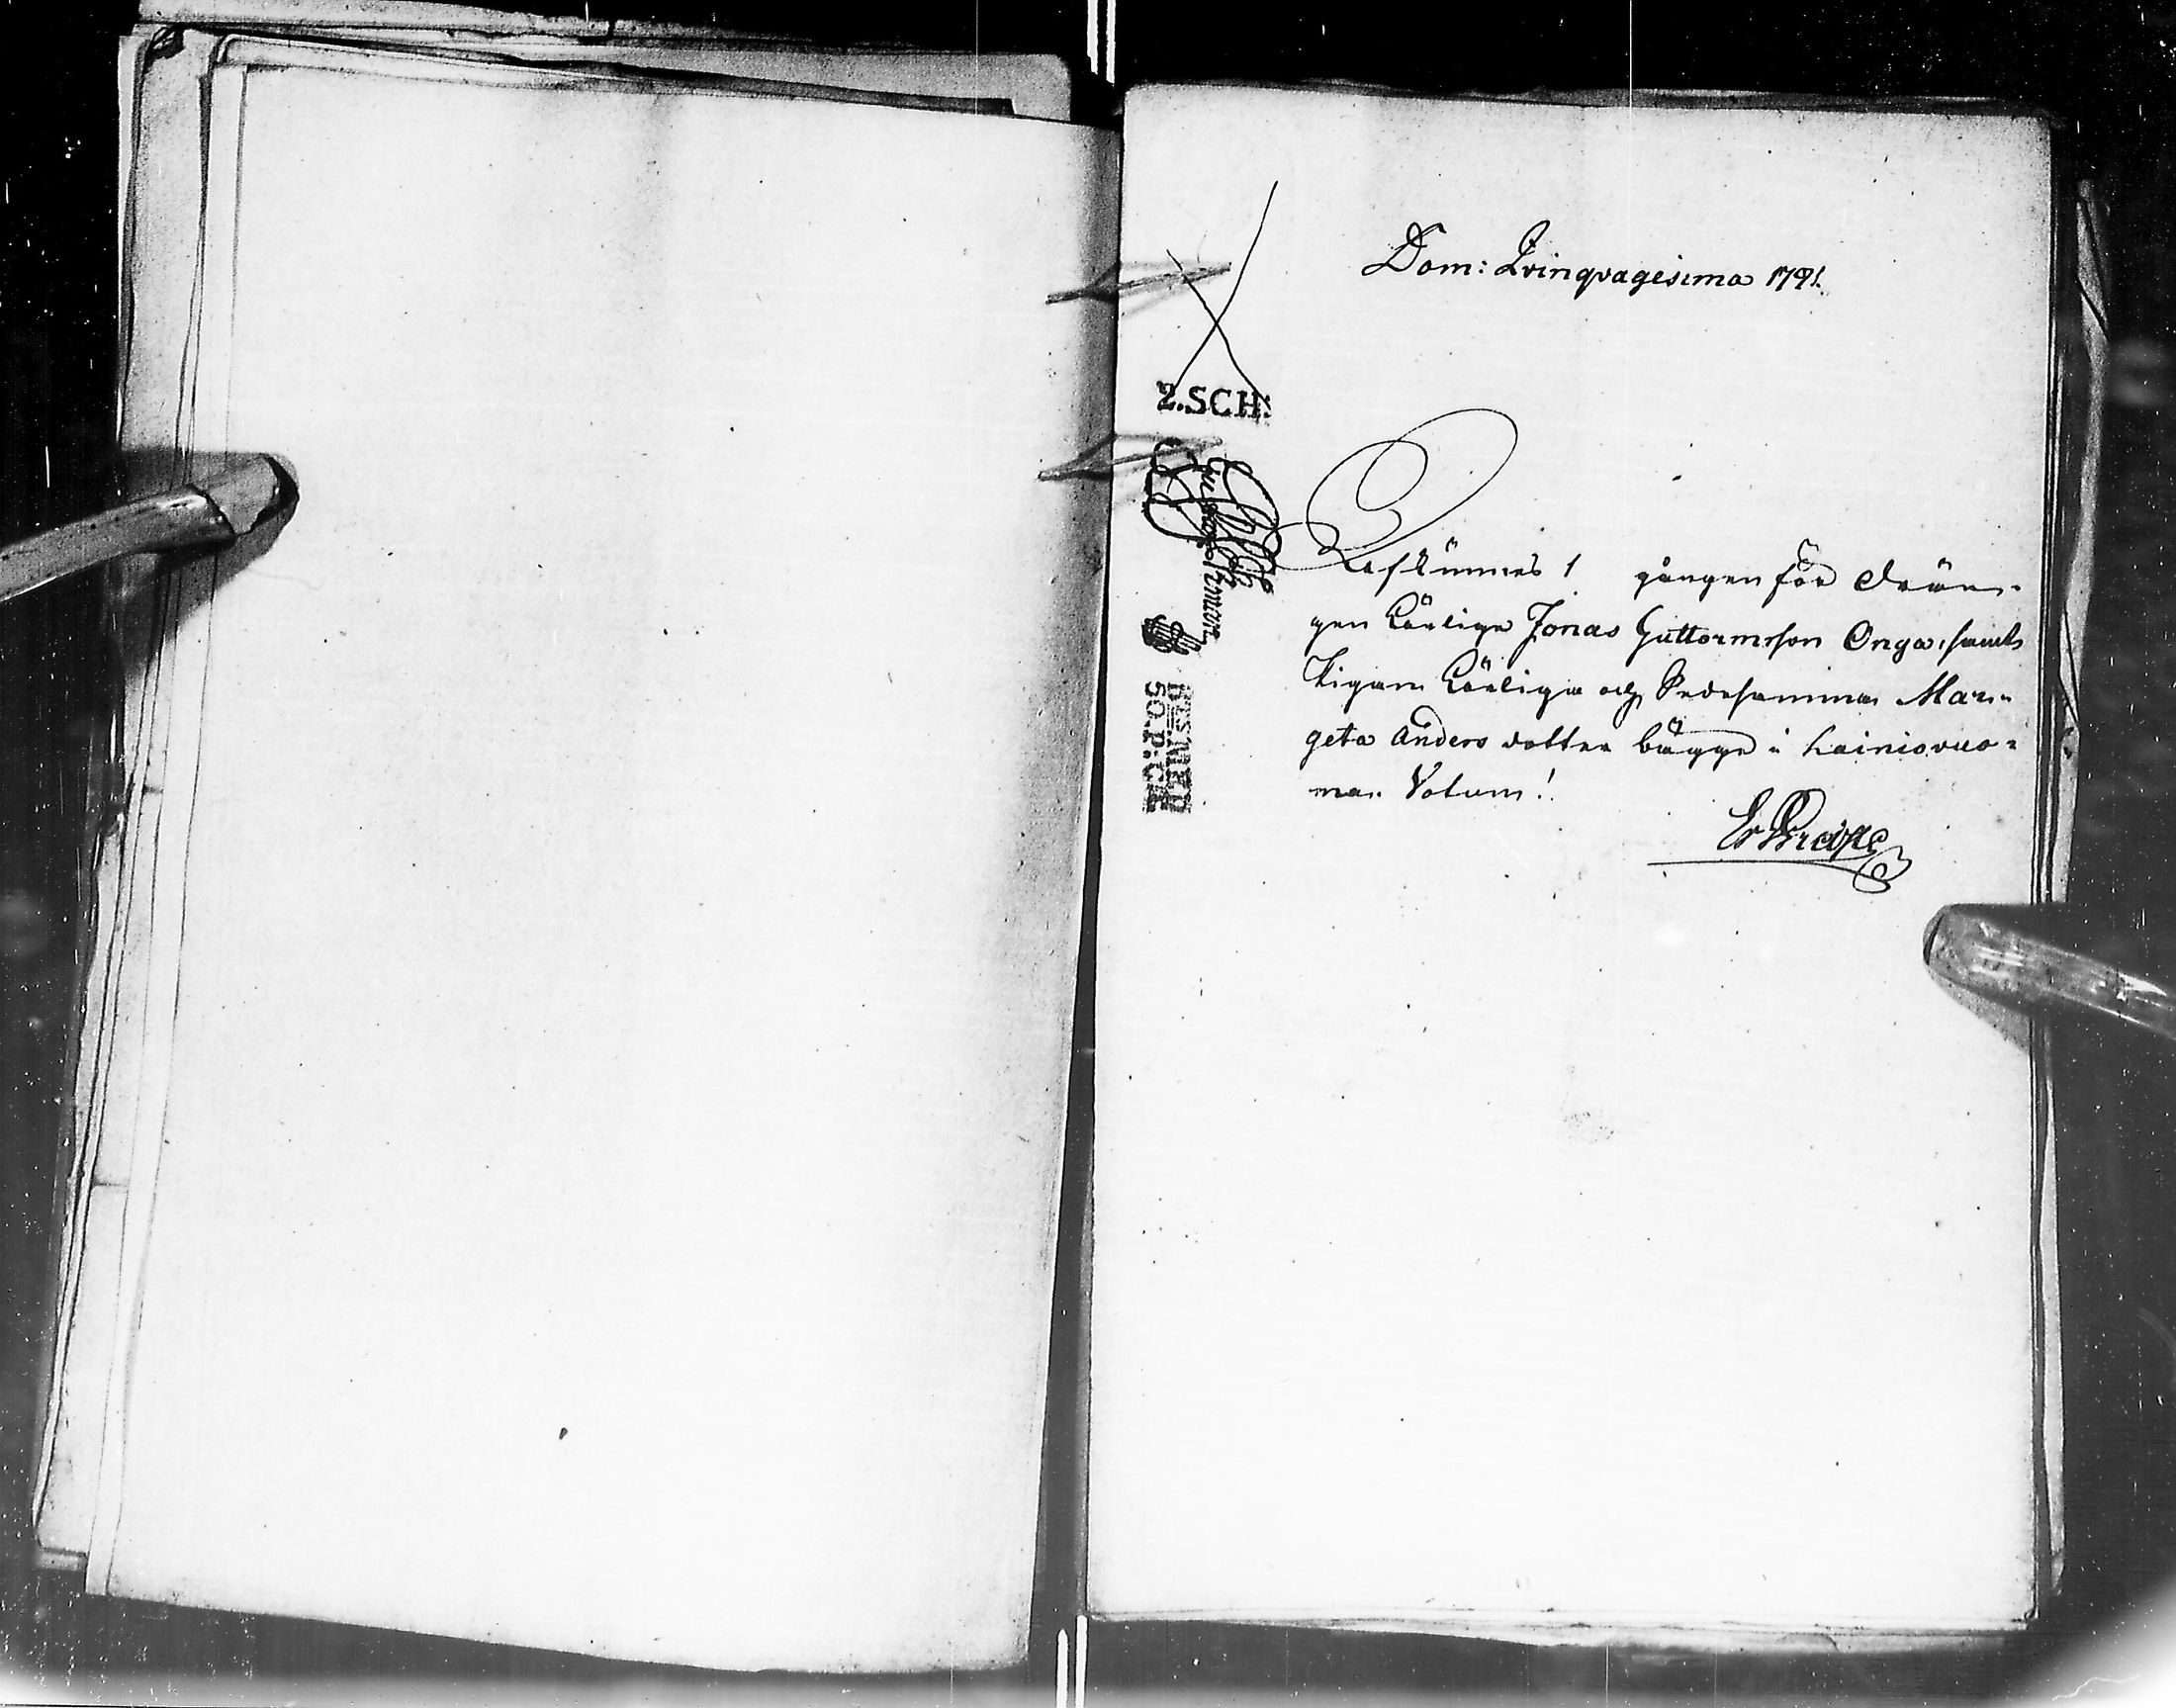 Dom: Qvinqvagesima 1791.
2.SCH:
Afkunnes 1 gången för Drän-
gen Ärlige Jonas Guttormsson Onga, samt
Pigan Ärliga och Dydesamma Mar-
geta Anders dotter bägge i Lainiovuo-
ma. Votum!